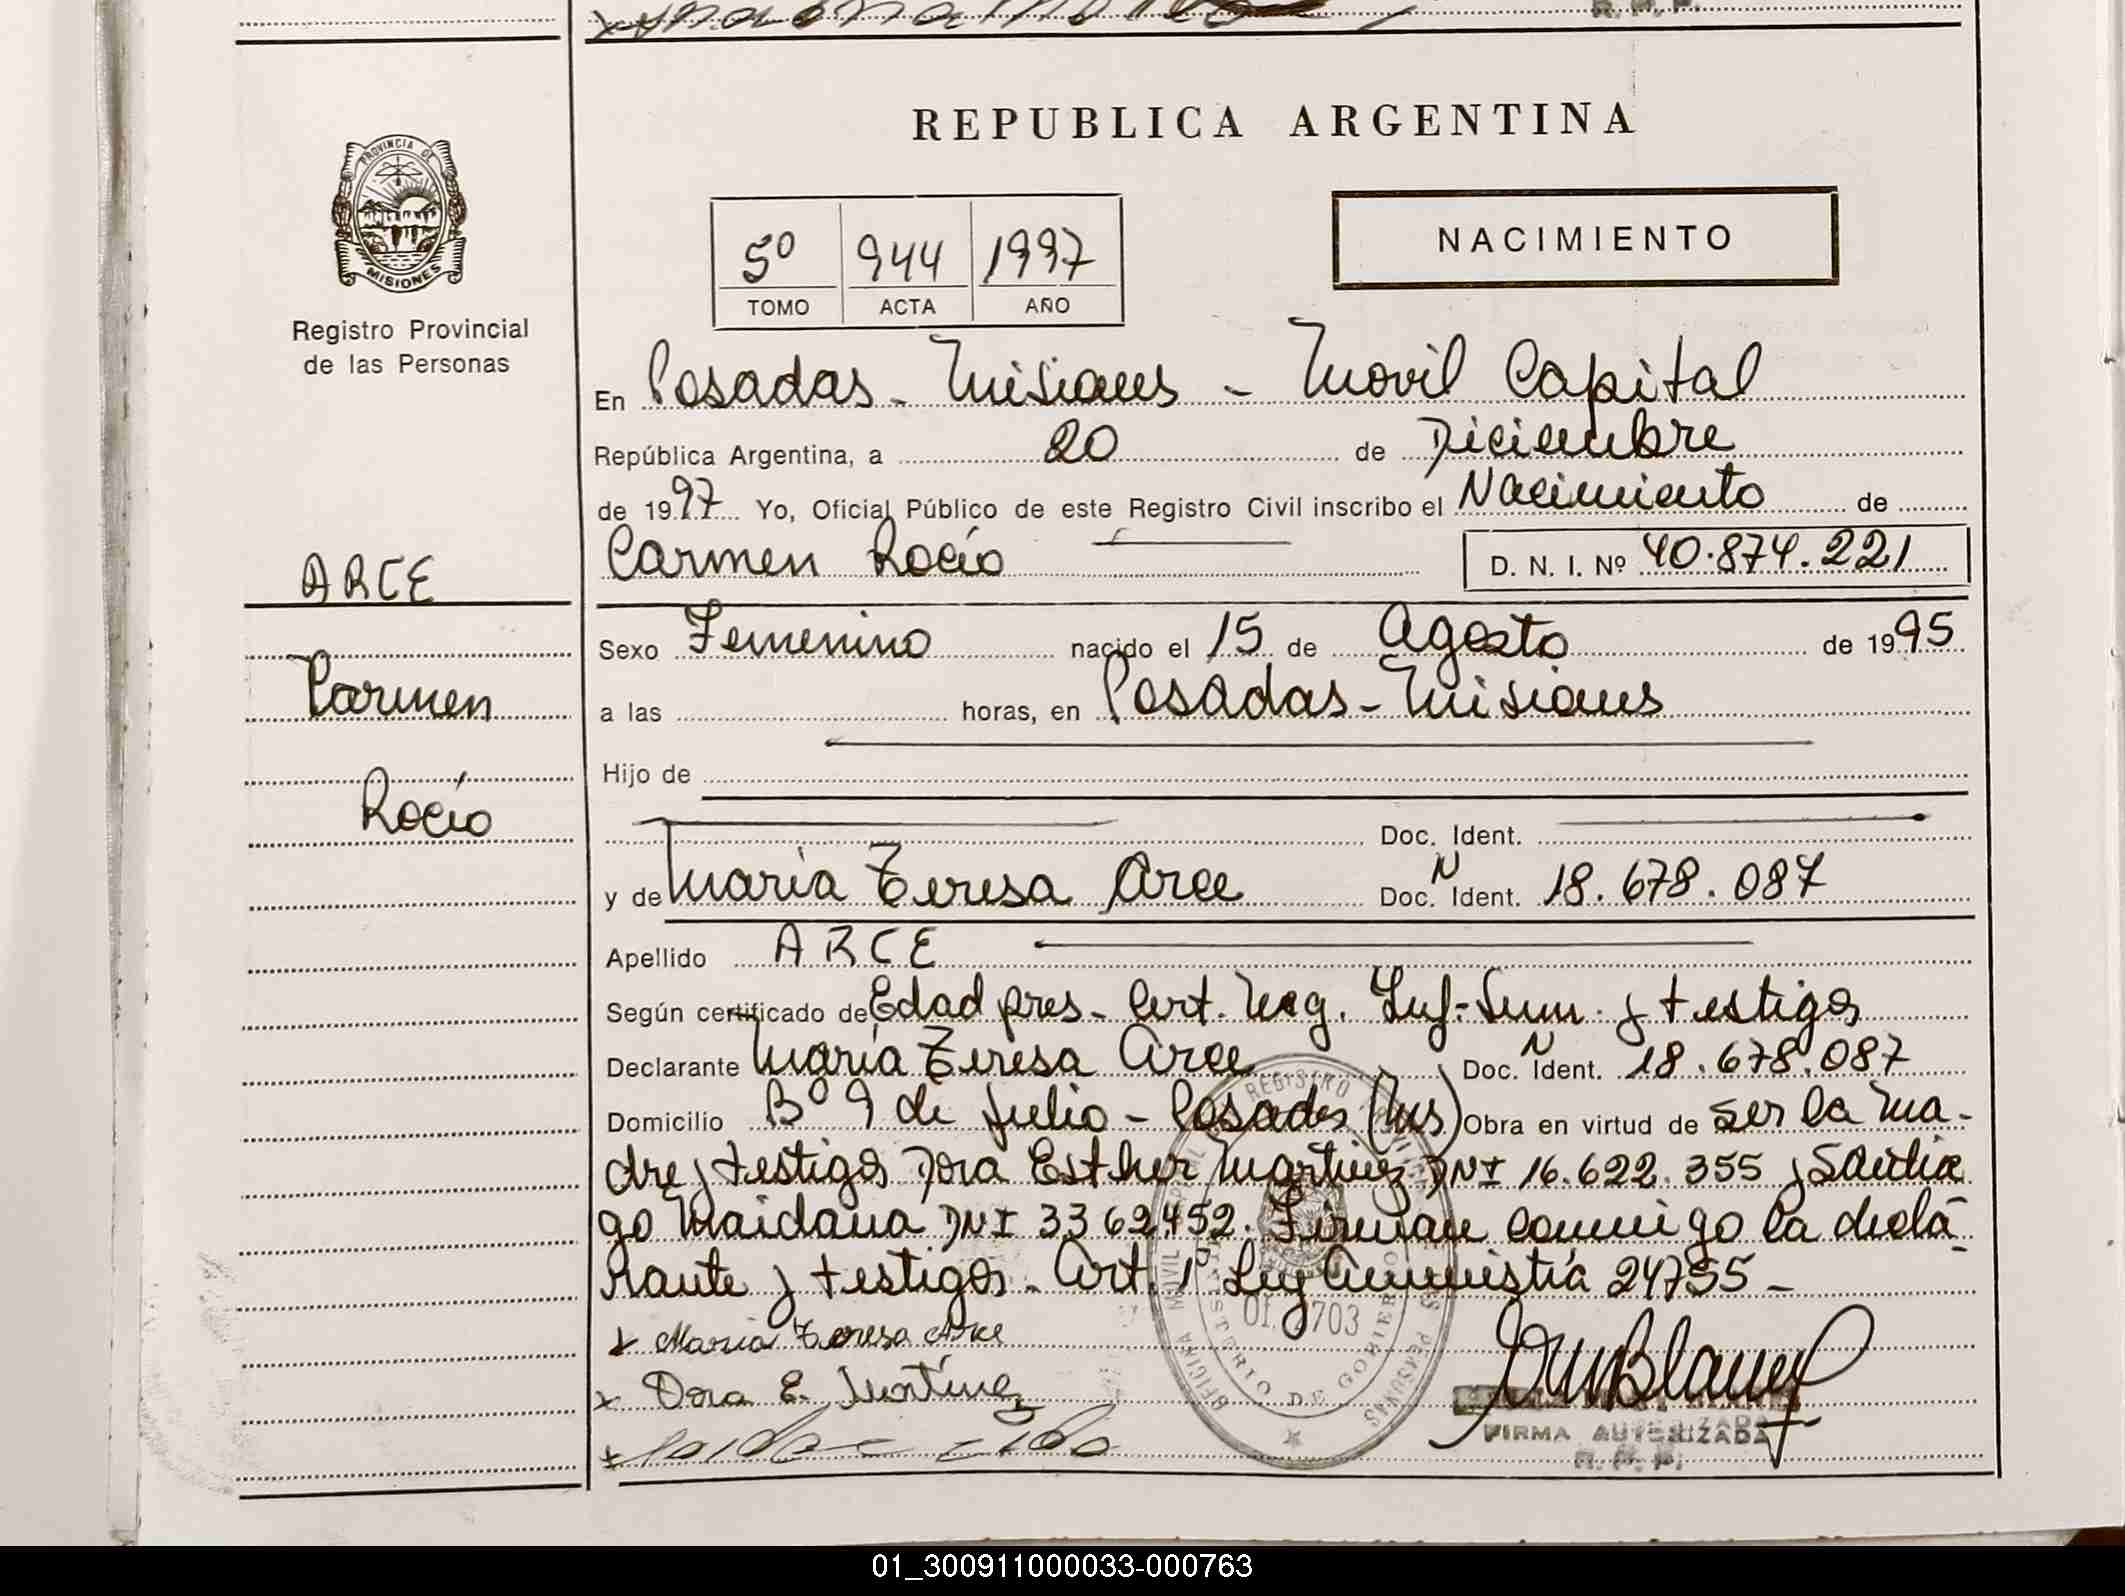 R. P. P.
PROVINCIA DE
MISIONES
Registro Provincial
de las Personas
ARCE
Carmen
Rocío
REPUBLICA ARGENTINA
5º 944 1997
TOMO ACTA AÑO
NACIMIENTO
En Posadas - Misiones - Movil Capital
República Argentina, a 20 de Diciembre
de 1997 Yo, Oficial Público de este Registro Civil inscribo el Nacimiento de
Carmen Rocío D. N. I. Nº 40.874.221
Sexo Femenino nacido el 15 de Agosto de 1995
a las horas, en Posadas - Misiones
Hijo de
Doc. Ident.
y de María Teresa Arce Doc. N Ident. 18.678.087
Apellido ARCE
Según certificado de Edad pres. Cert. Neg. Inf. Sum. y testigos
Declarante María Teresa Arce Doc. N Ident. 18.678.087
Domicilio Bº 9 de Julio - Posadas (Ms) Obra en virtud de ser la ma-
dre y testigos Dora Esther Martinez DNI 16.622.355 y Santia
go Maidana DNI 3362452. Firman conmigo la decla
rante y testigos - Art. 1º Ley Amnistía 24755 -
María Teresa Arce
Dora E. Martínez
OFICINA MOVIL
MINISTERIO DE GOBIERNO
FIRMA AUTORIZADA
R. P. P.
01_300911000033-000763